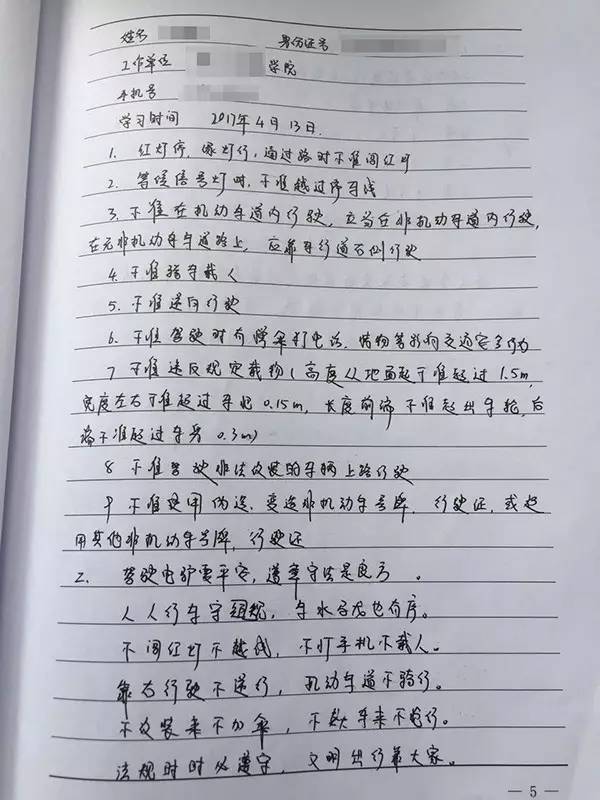 姓名 身份证号
工作单位 学院
手机号
学习时间 2017年4月13日.
1. 红灯停, 绿灯行, 通过路时不准闯红灯
2. 等候信号灯时, 不准越过停车线
3. 不准在机动车道内行驶, 应当在非机动车道内行驶,
在无非机动车车道路上, 应靠车行道右侧行驶
4. 不准骑车载人
5. 不准逆向行驶
6. 不准驾驶时有撑伞打电话, 等影响交通安全行为
7 不准违反规定载物(高度从地面起不准超过1.5m,
宽度左右不准超过车把0.15m, 长度前端不准超出车轮, 后
端不准超过车身0.3m)
8 不准驾驶非法改装的车辆上路行驶
9 不准使用伪造、变造非机动车号牌, 行驶证, 或使
用其他非机动车号牌, 行驶证
2. 驾驶电驴要平安, 遵章守法是良方。
人人行车守规, 车水马龙也有序。
不闯红灯不越线, 不打手机不载人。
靠右行驶不逆行, 机动车道不骑行。
不改装来不加伞, 不飙车来不抢行。
法规时时必遵守, 文明出行靠大家。
— 5 —